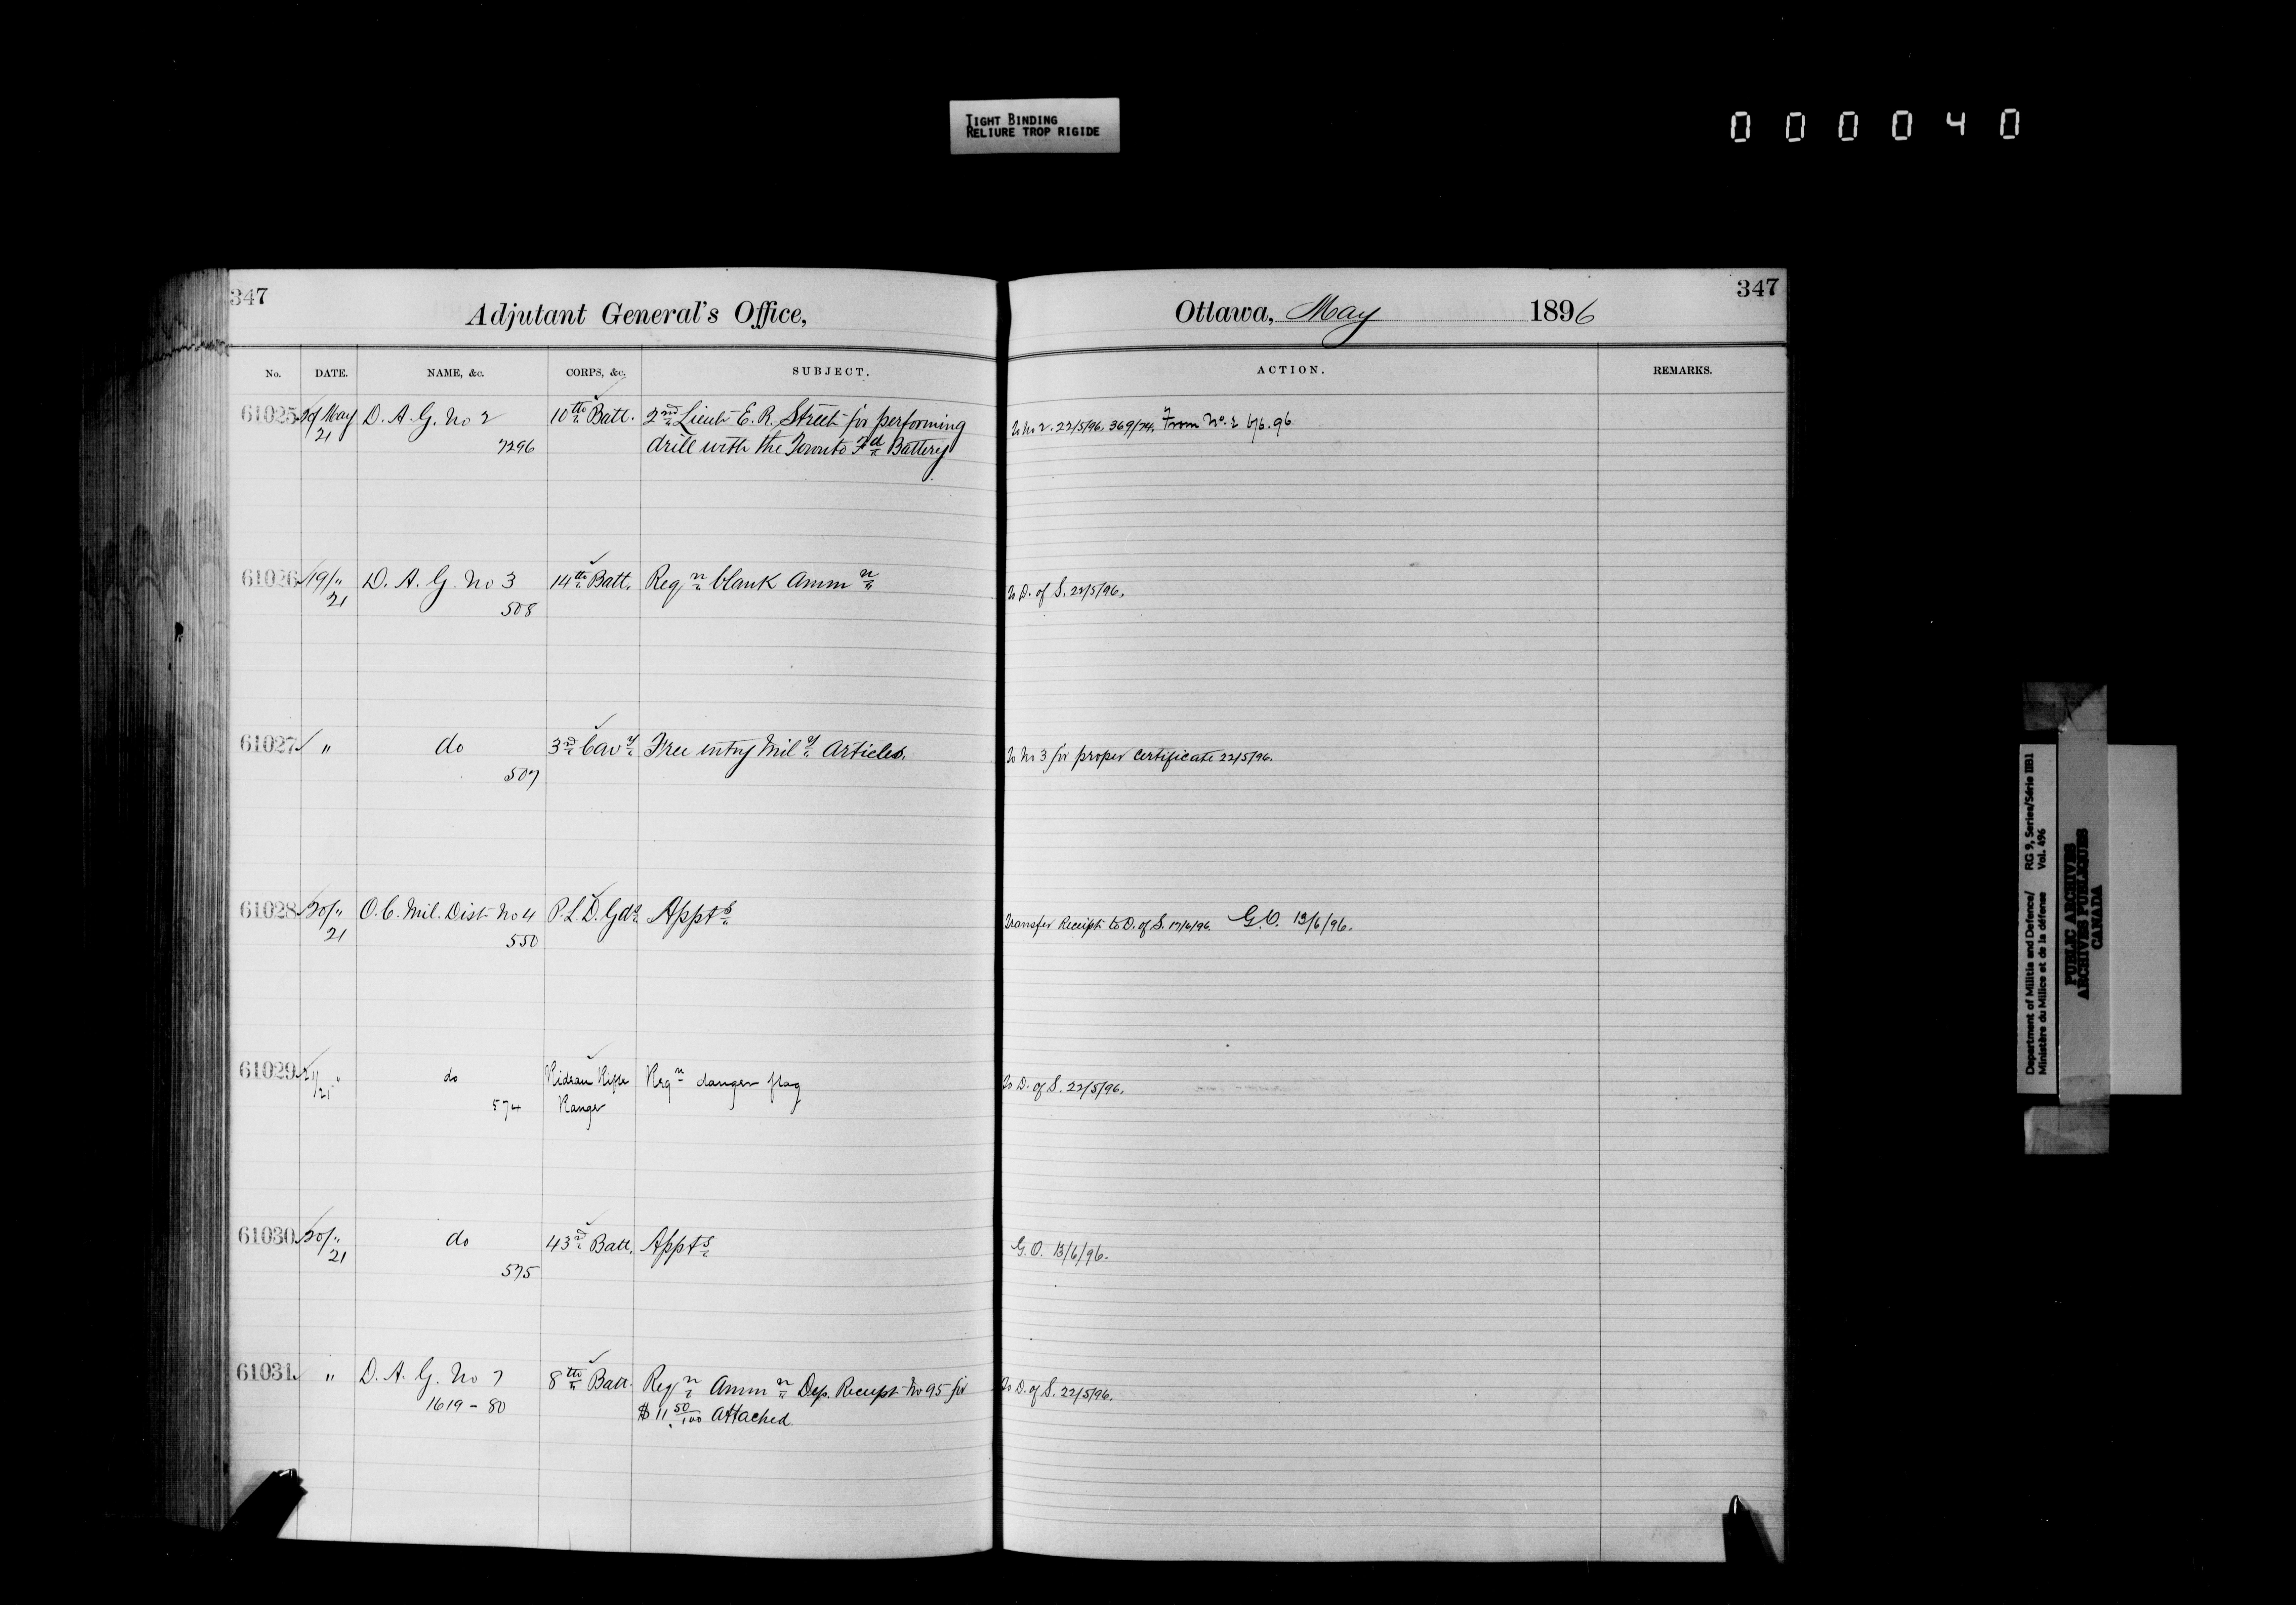 TIGHT BINDING
RELIURE TROP RIGIDE
000040
347
Adjutant General's Office,
Ottawa, May 1896
347
No. DATE. NAME, &c. CORPS, &c. SUBJECT. ACTION. REMARKS.
61025 May D. A. G. No 2 10th Batt. 2nd Lieut E. R. Street for performing
To No 2. 22/5/96. 369/24. From No. 2 6/6.96
21 7296 drill with the Toronto Fd Battery
61026 19/" D. A. G. No 3 14th Batt. Reqn blank Ammn
To D. of S. 22/5/96.
21 508
61027 " do 3rd Cavy Free entry Mily Articles.
To No 3 for proper Certificate 22/5/96.
507
61028 20/" O. C. Mil. Dist No 4 P. L. D. Gds Appts
Transfer Receipt to D. of S. 17/6/96. G.O. 13/6/96.
21 550
61029 21/" do Rideau Rifle Reqn danger flag
To D. of S. 22/5/96.
21 574 Ranges
61030 20/" do 43rd Batt. Appts
G. O. 13/6/96.
21 575
61031 " D. A. G. No 7 8th Batt. Reqn Ammn Dep. Receipt No 95 for
To D. of S. 22/5/96.
1619-80 $11 50/100 Attached
Department of Militia and Defence/ RG 9, Series/Série IIB1
Ministère du Milice et de la défense Vol. 496
PUBLIC ARCHIVES
ARCHIVES PUBLIQUES
CANADA